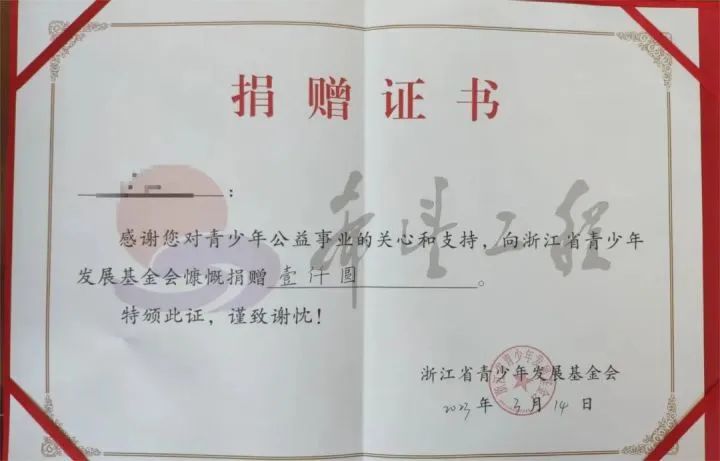 捐赠证书
:
感谢您对青少年公益事业的关心和支持，向浙江省青少年
发展基金会慷慨捐赠壹仟圆。
特颁此证，谨致谢忱！
希望工程
浙江省青少年发展基金会
2023年3月14日
浙江省青少年发展基金会